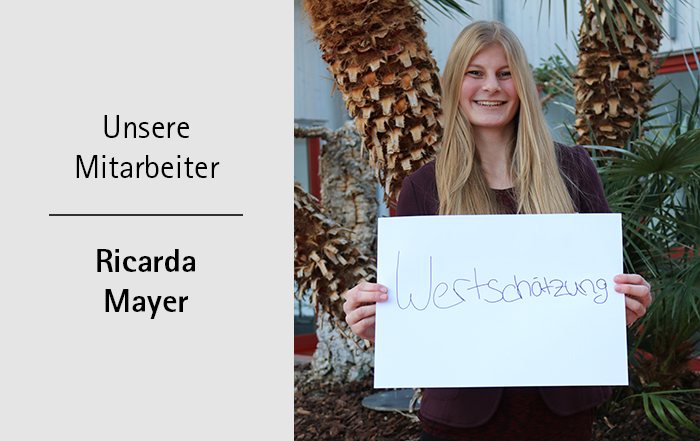 Unsere
Mitarbeiter
Ricarda
Mayer
Wertschätzung